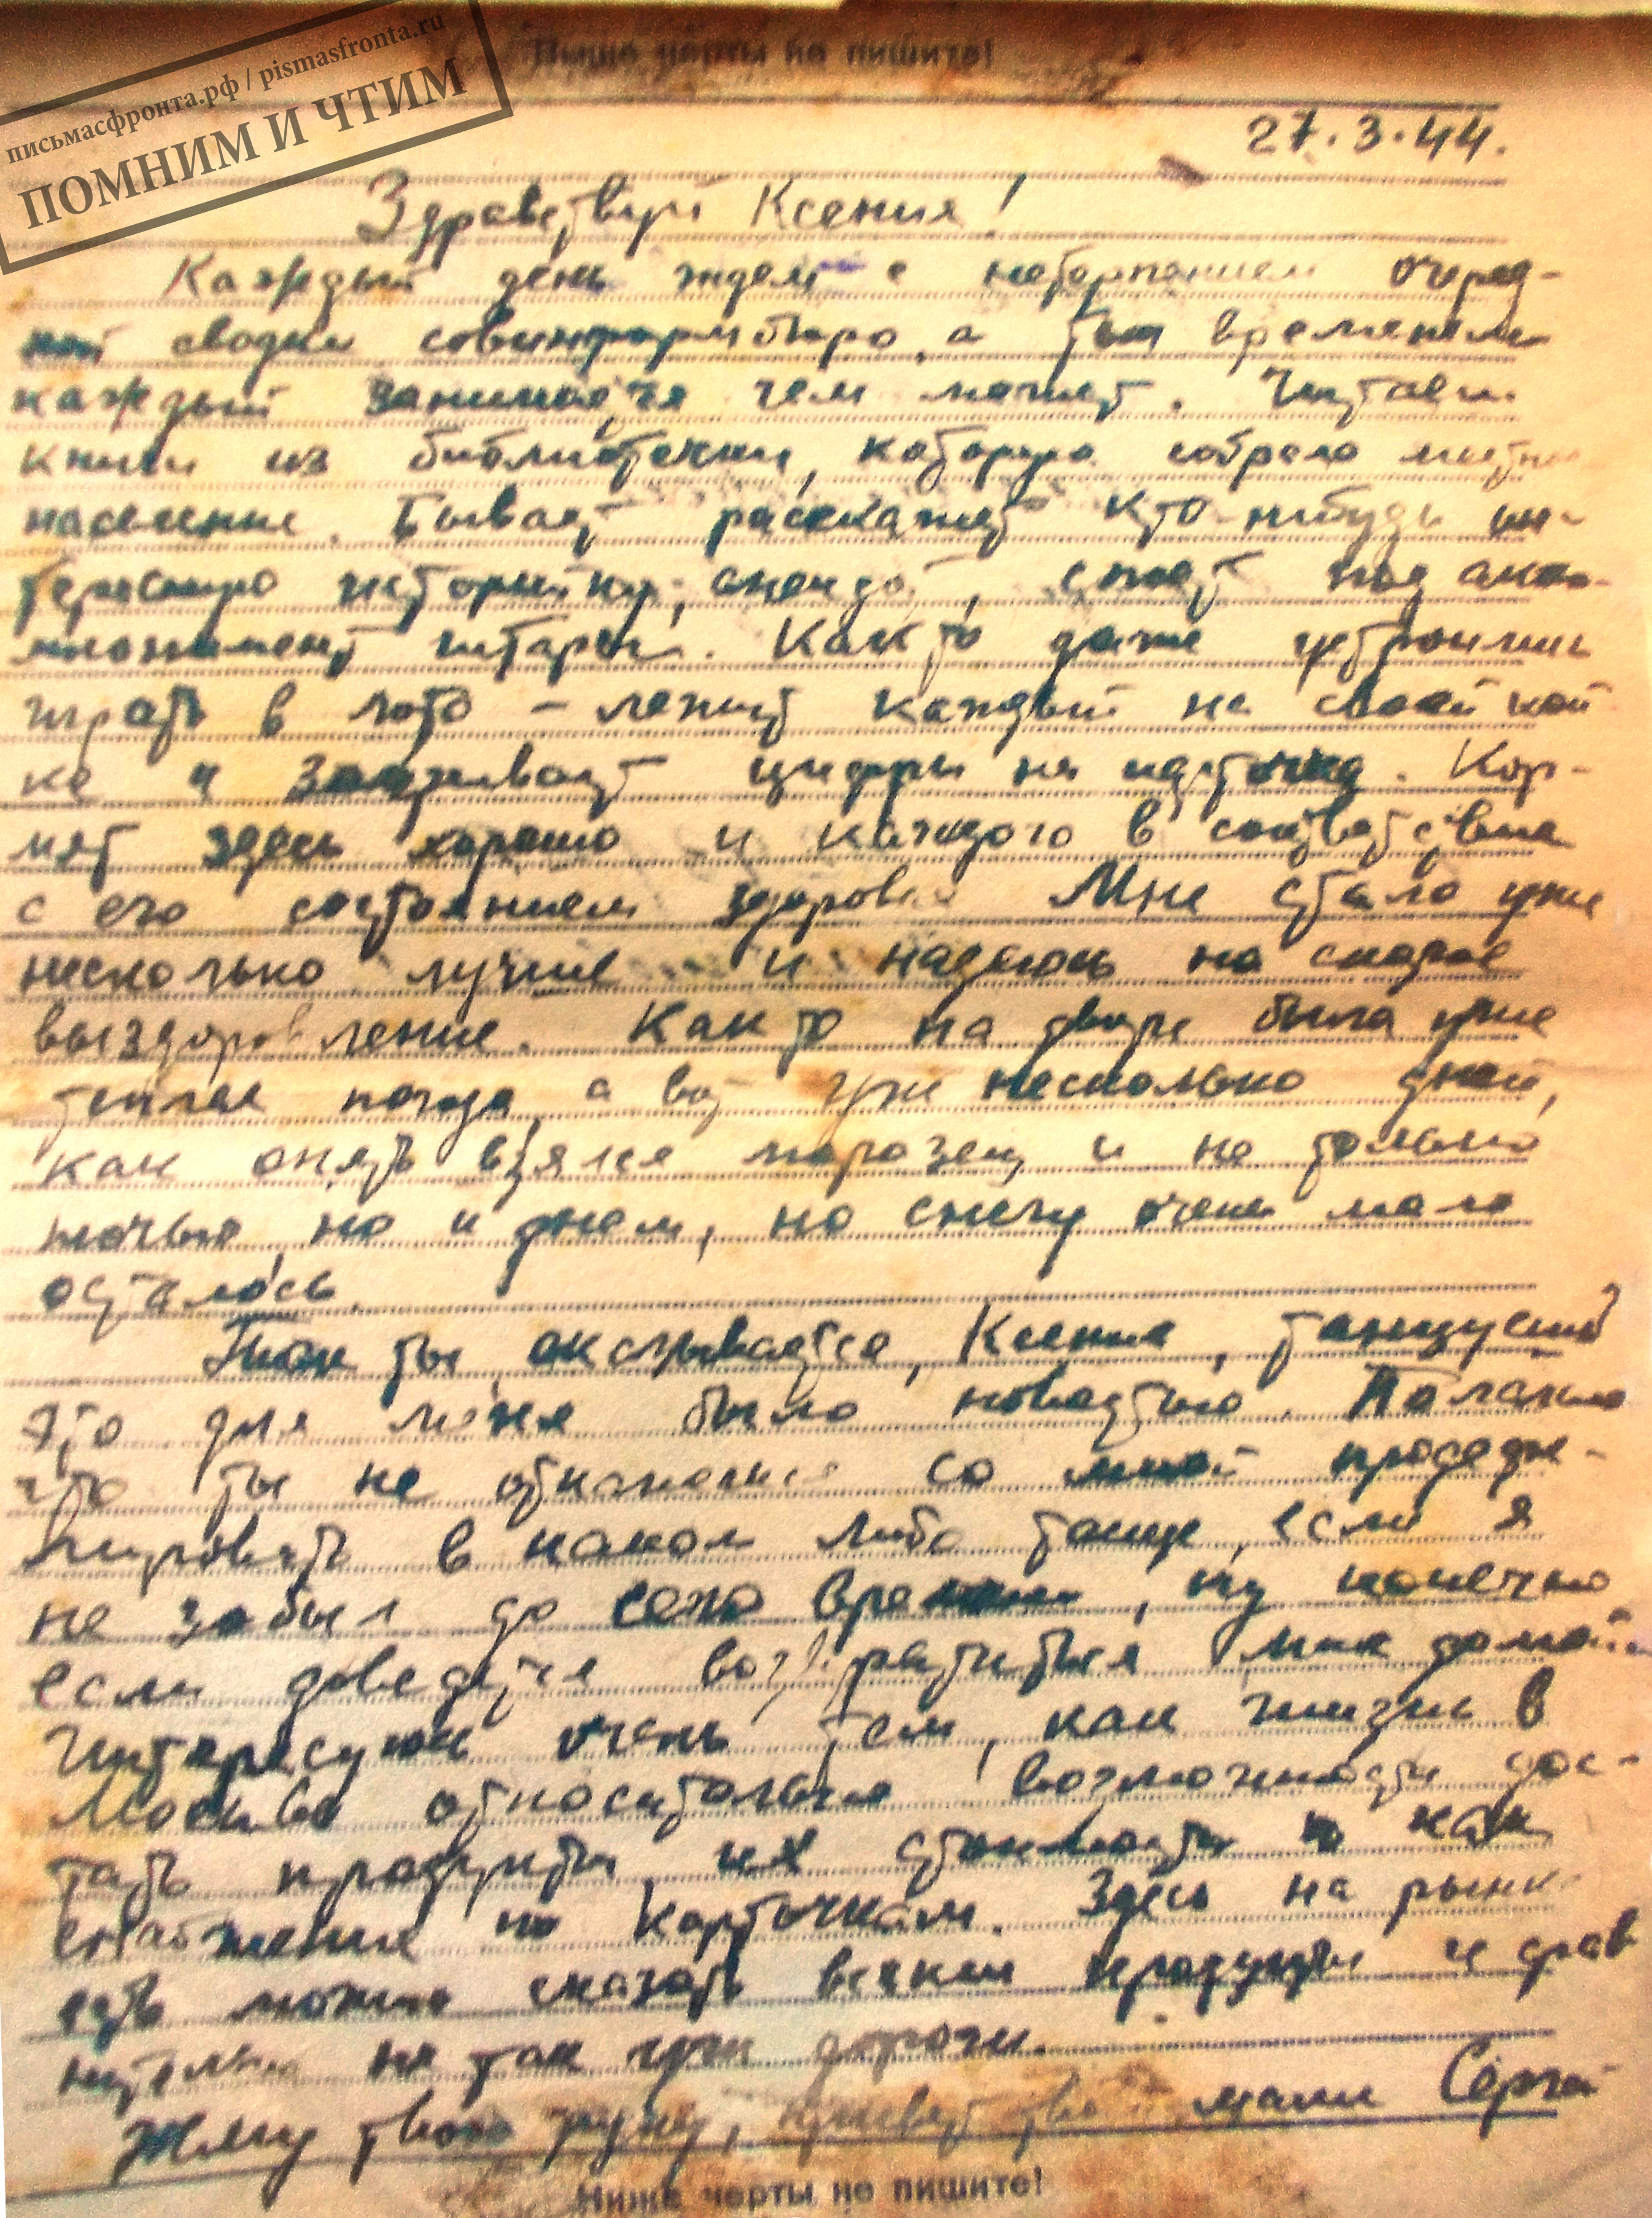 письмасфронта.рф / pismasfronta.ru
ПОМНИМ И ЧТИМ
Выше черты не пишите!
27.3.44.
Здравствуй Ксения!
Каждый день ждем с нетерпением очеред-
ной сводки совинформбюро, а тем временем
каждый занимается чем может. Читаем
книги из библиотечки, которую собрало местное
население. Бывает расскажет кто-нибудь ин-
тересную историйку, анекдот, споет под акком-
понимент гитары. Как то даже устроились
играть в лото – лежит каждый на своей кой
ке и закрывает цифры на карточке. Кор-
мят здесь хорошо и каждого в соответствие
с его состоянием здоровья Мне стало уже
несколько лучше и надеюсь на скорое
выздоровление. Как то на дворе была уже
теплая погода, а вот уже несколько дней,
как опять взялся морозец и не только
ночью, но и днем, но снегу очень мало
осталось.
Так ты оказывается, Ксения, танцуешь
это для меня было новостью. Полагаю
что ты не откажешься со мной
в каком либо танце, если я
не забыл до сего времени, ну конечно
если доведется возвратиться мне домой.
Интересуюсь очень тем, как жизнь в
Москве относительно возможности дос-
тать продукты, их стоимости и как
снабжение по карточкам. Здесь на рынке
есть можно сказать всякие продукты и срав
нительно не так уж дороги.
Жму твою руку, привет твоей маме Сергей
Ниже черты не пишите!